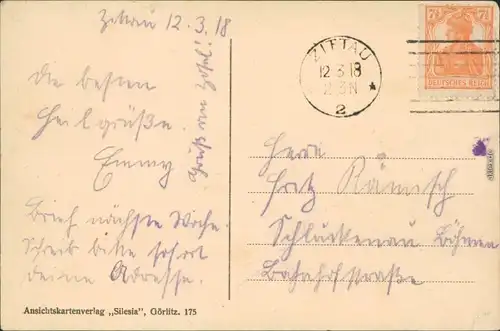 Zittau 12.3.18
Die besten
Heilgrüße.
Emmy
Brief nächste Woche.
Schreib bitte sofort
deine Adresse.
Gruß an
Ansichtskartenverlag „Silesia", Görlitz. 175
ZITTAU
12.3.18
2-3N
2
7½ 7½
DEUTSCHES REICH
Herrn
Fritz Rämisch
Schluckenau Böhmen
Bahnhofstraße